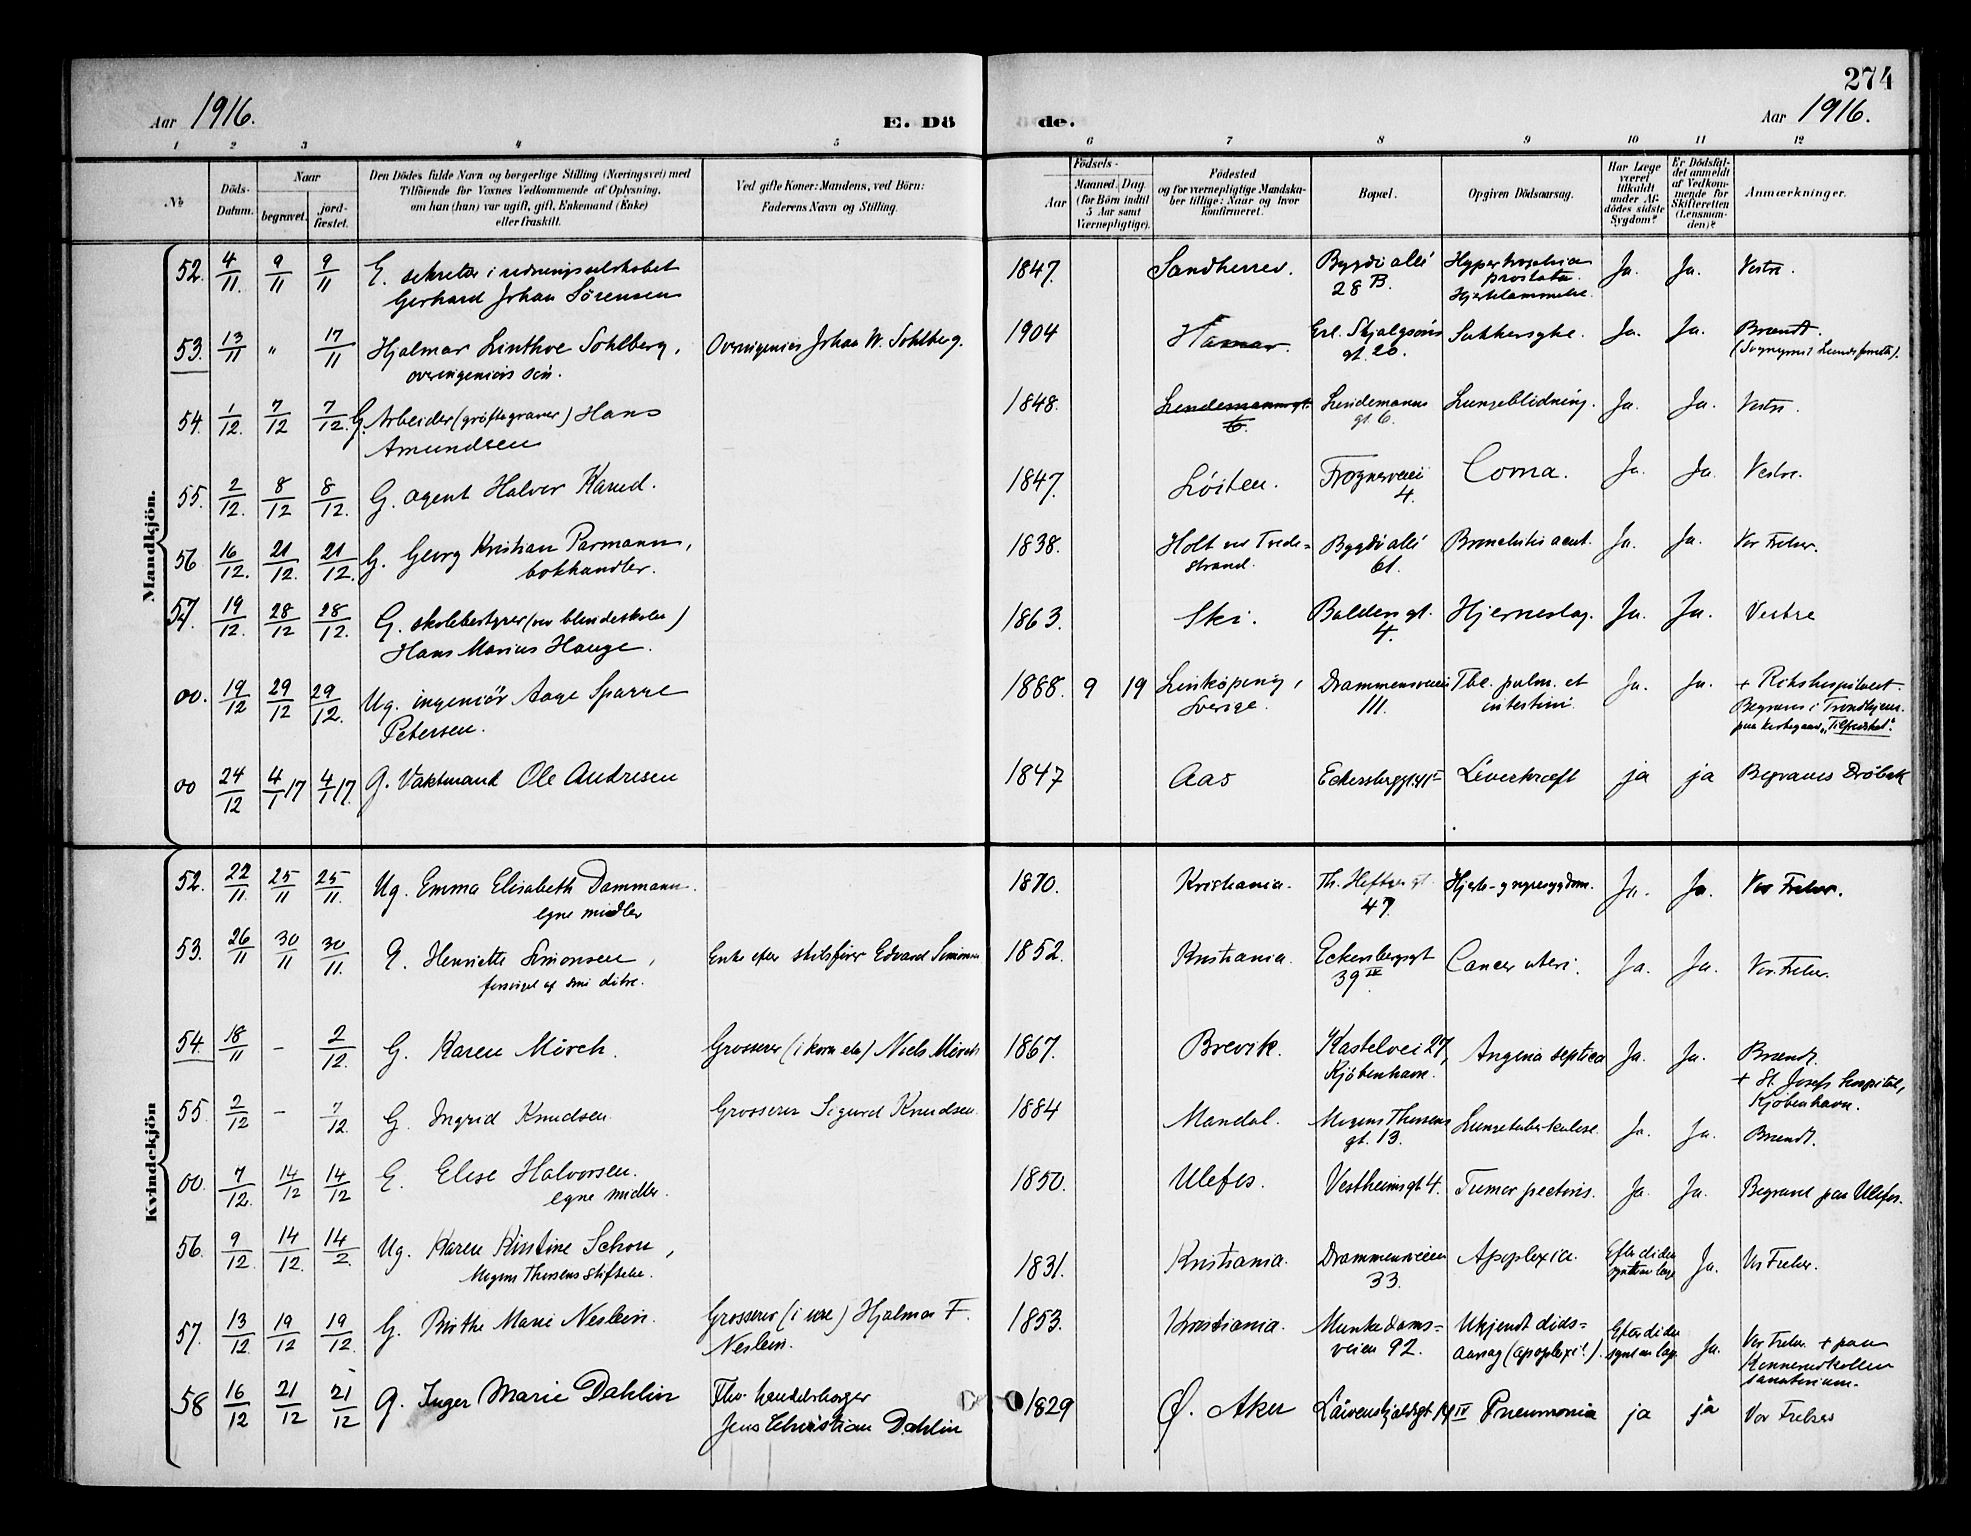 274
Aar 1916.
E. Dö de.
Aar 1916.
1 2 3 4 5 6 7 8 9 10 11 12
No
Döds-Datum.
Naar
begravet.
jord-fæstet.
Den Dödes fulde Navn og borgerlige Stilling (Næringsvei) med
Tilföiende for Voxnes Vedkommende af Oplysning,
om han (hun) var ugift, gift, Enkemand (Enke)
eller fraskilt.
Ved gifte Koner: Mandens, ved Börn:
Faderens Navn og Stilling.
Födsels-
Aar
Maaned. Dag.
(for Börn indtil
5 Aar samt
Værnepligtige).
Födested
og for værnepligtige Mandska-
ber tillige: Naar og hvor
konfirmeret.
Bopæl.
Opgiven Dödsaarsag.
Har Læge
været
tilkaldt
under Af-
dödes sidste
Sygdom?
Er Dödsfal-
det anmeldt
af Vedkom-
mende for
Skifteretten
(Lensman-
den)?
Anmærkninger.
Mandkjön.
52. 4/11. 9/11 9/11 E. sekretær i redningsselskabet
Gerhard Johan Sörensen
1847. Sandherred. Bygdö allé
28 B. Hypertrophia
prostata.
Hjertelammelse. Ja. Ja. Vestre.
53. 13/11 " 17/11 Hjalmar Linthoe Sohlberg,
overingeniörs sön.
Overingeniör Johan W. Sohlberg.
1904 Hamar. Erl. Skjalgsöns
gt. 20. Sukkersyke. Ja. Ja. Brændt.
54. 1/12. 7/12 7/12. G. Arbeider (gröftegraver) Hans
Amundsen
1848. Lindemannsgt.
6. Lindemanns
gt. 6. Lungeblödning. Ja. Ja. Vestre.
55. 2/12. 8/12 8/12. G. agent Halvor Kamd.
1847. Löiten. Frognerveien
4. Coma. Ja. Ja. Vestre.
56 16/12. 21/12. 21/12. G. Georg Kristian Parmann,
bokhandler.
1838. Holt ved Tvede-
strand. Bygdö allé
61. Bronchitis acut. Ja. Ja. Vor Frelser.
57. 19/12. 28/12 28/12. G. skolebestyrer (ved blindeskolen)
Hans Marius Hauge.
1863. Ski. Baldersgt.
4. Hjerneslag. Ja. Ja. Vestre
00. 19/12 29/12 29/12. Ug. ingeniör Aage Sparre
Petersen.
1888. 9 19 Linköping,
Sverige. Drammensveien
111. Tbc. pulm. et
intestini. Ja. Ja. + Rikshospitalet.
Begraves i Trondhjem.
paa kirkegaard "Tilfredshet".
00 24/12 4/1 17 4/1 17. G. Vaktmand Ole Andresen
1847 Aas Eckersbergsgt. 41 II Leverkræft ja ja Begraves Dröbak
Kvindekjön
52. 22/11 25/11 25/11. Ug. Emma Elisabeth Dammann.
egne midler
1870. Kristiania. Th. Heftyes gt.
47. Hjerte- og nyresygdom. Ja. Ja. Vor Frelser.
53. 26/11 30/11 30/11. E. Henriette Simonsen,
forsörget af sine dötre.
Enke efter skibsförer Edvard Simonsen
1852. Kristiania. Eckersbergsgt
39 IV Cancer uteri. Ja. Ja. Vor Frelser.
54. 18/11 - 2/12. G. Karen Mörch.
Grosserer (i korn etc) Niels Mörch
1867. Brevik. Kastelvei 27,
Kjöbenhavn. Angina septica Ja. Ja. Brændt.
+ St. Josefs hospital,
Kjöbenhavn.
55 2/12 - 7/12. G. Ingrid Knudsen.
Grosserer Sigurd Knudsen.
1884 Mandal. Mogens Thorsens
gt. 13. Lungetuberkulose. Ja. Ja. Brændt.
00. 7/12. 14/12 14/12 E. Elise Halvorsen.
egne midler.
1850. Ulefos. Vestheimsgt. 4. Tumor pectoris. Ja. Ja. Begravet paa Ulefos.
56. 9/12 14/12. 14/2 Ug. Karen Kirstine Schou,
Mogens Thorsens stiftelse.
1831. Kristiania. Drammensveien
33. Apoplexia. Efter döden
synet av læge Ja. Vor Frelser.
57. 13/12. 19/12 19/12. G. Birthe Marie Neslein.
Grosserer (i ure) Hjalmar F.
Neslein.
1853. Kristiania. Munkedams-
veien 92. Ukjendt döds-
aarsag (apoplexi?). Efter döden
synet av læge Ja. Vor Frelser + paa
Konnerudkollen
sanatorium.
58 16/12 21/12 21/12 G. Inger Marie Dahlin
Fhv. handelsborger
Jens Christian Dahlin
1829 Ø. Aker Lövenskjoldsgt 14 IV Pneumonia ja ja Vor Frelsers